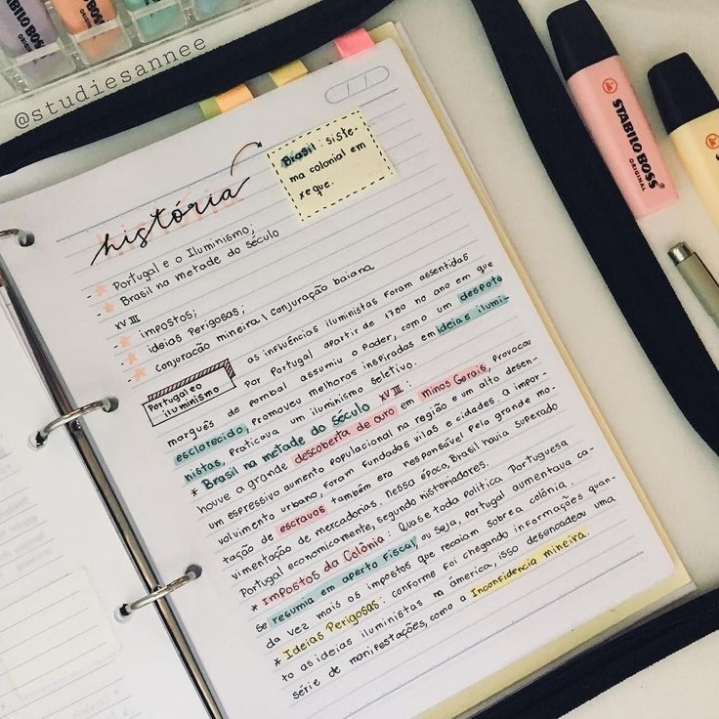 @studiesannee
Brasil: siste-
ma colonial em
xeque.
história
- Portugal e o Iluminismo;
- Brasil na metade do século
XVIII
- impostos;
- ideias Perigosas;
- Conjuração mineira | conjuração baiana
Portugal e o
iluminismo
as influências iluministas foram assentidas
Por Portugal apartir de 1750 no ano em que
marquês de pombal assumiu o poder, como um despota
esclarecido, promoveu melhoras inspiradas em ideias ilumi-
nistas, Praticava um iluminismo seletivo.
* Brasil na metade do século XVIII:
houve a grande descoberta de ouro em minas Gerais, Provocou
um espressivo aumento populacional na região e um alto desen-
volvimento urbano, foram fundadas vilas e cidades. a impor-
tação de escravos também era responsável Pela grande mo-
vimentação de mercadorias. Nessa época, Brasil havia superado
Portugal economicamente, segundo historiadores.
* Impostos da Colônia: Quase toda política Portuguesa
se resumia em aperto Fiscal, ou seja, Portugal aumentava ca-
da vez mais os impostos que recaiam sobre a colônia.
* Ideias Perigosas: conforme foi chegando informações quan-
to as ideias iluministas na américa, isso desencadeou uma
série de manifestações, como a Inconfidência mineira.
STABILO BOSS
ORIGINAL